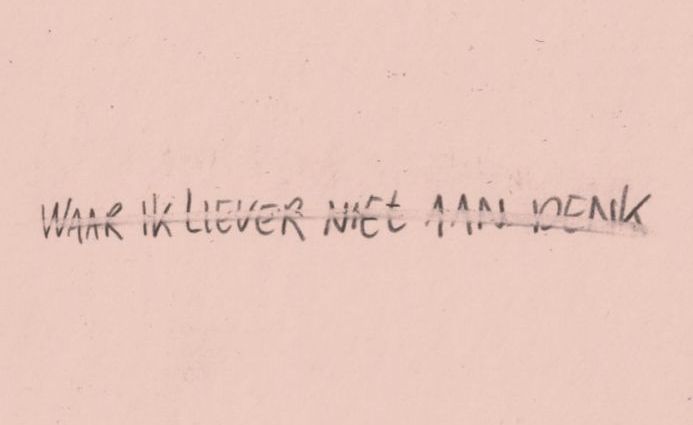 WAAR IK LIEVER NIEt AAN DENK